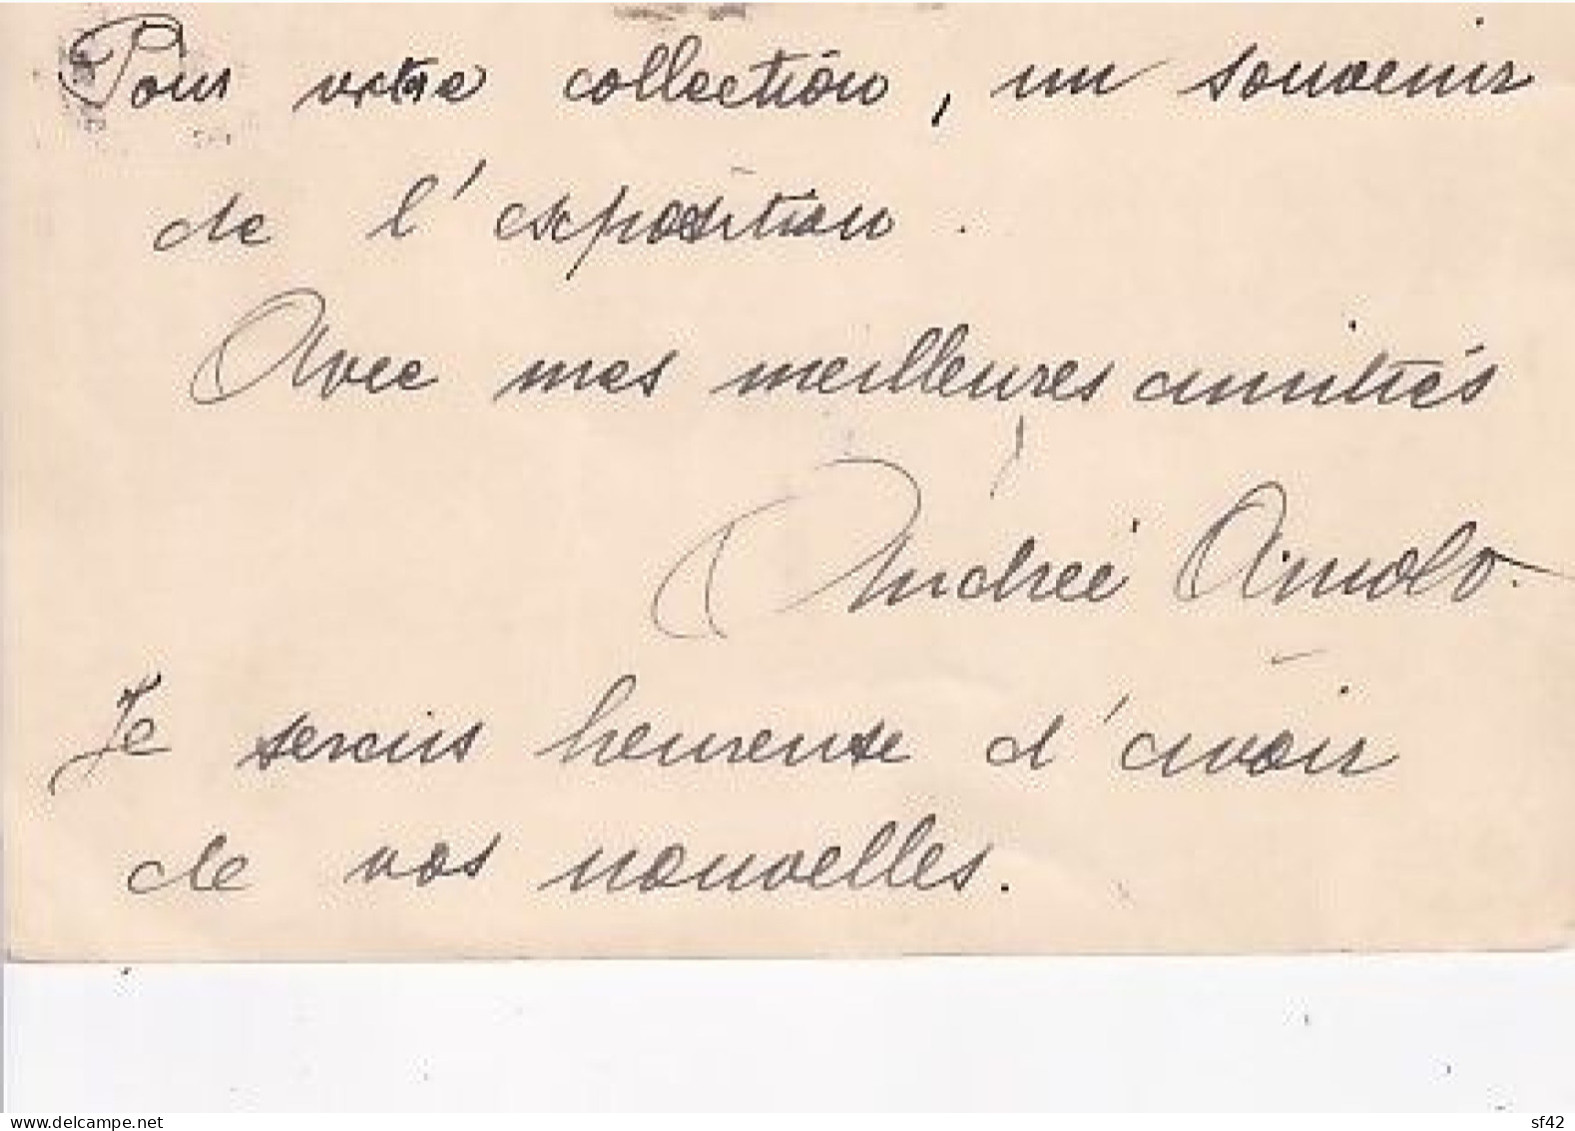 Pour votre collection, un souvenir
de l'exposition.
Avec mes meilleures amitiés
Andrée
Je serais heureuse d'avoir
de vos nouvelles.
www.delcampe.net
sf42